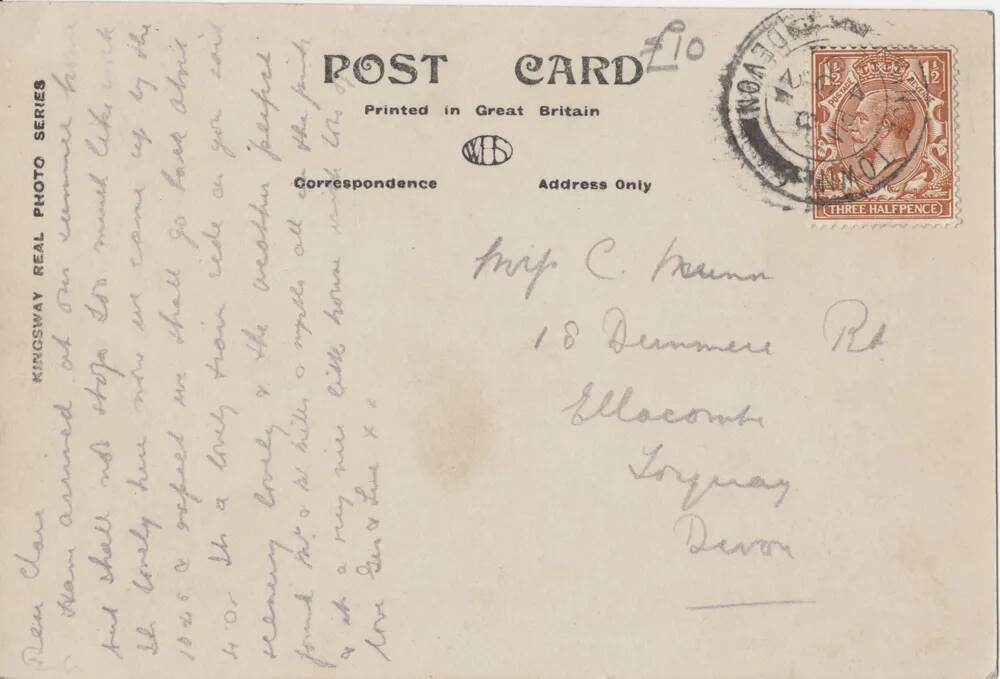 KINGSWAY REAL PHOTO SERIES
POST CARD
£10
Printed in Great Britain
WHS
Correspondence
Address Only
DEVON
KINGSWEAR
TOWN
1½ 1½
POSTAGE REVENUE
THREE HALFPENCE
Dear Clare
arrived at our summer
but shall not stop too much like
Its lovely here now we came up by the
10 45 & expect we shall go back about
4 0. Its a lovely train ride as you said
scenery lovely & the weather perfect
found Mr & Mrs Mills & myself all in the pink
& its a very nice little house with lots of
love x x
Miss C. Munn
18 Dunmere Rd
Ellacombe
Torquay
Devon